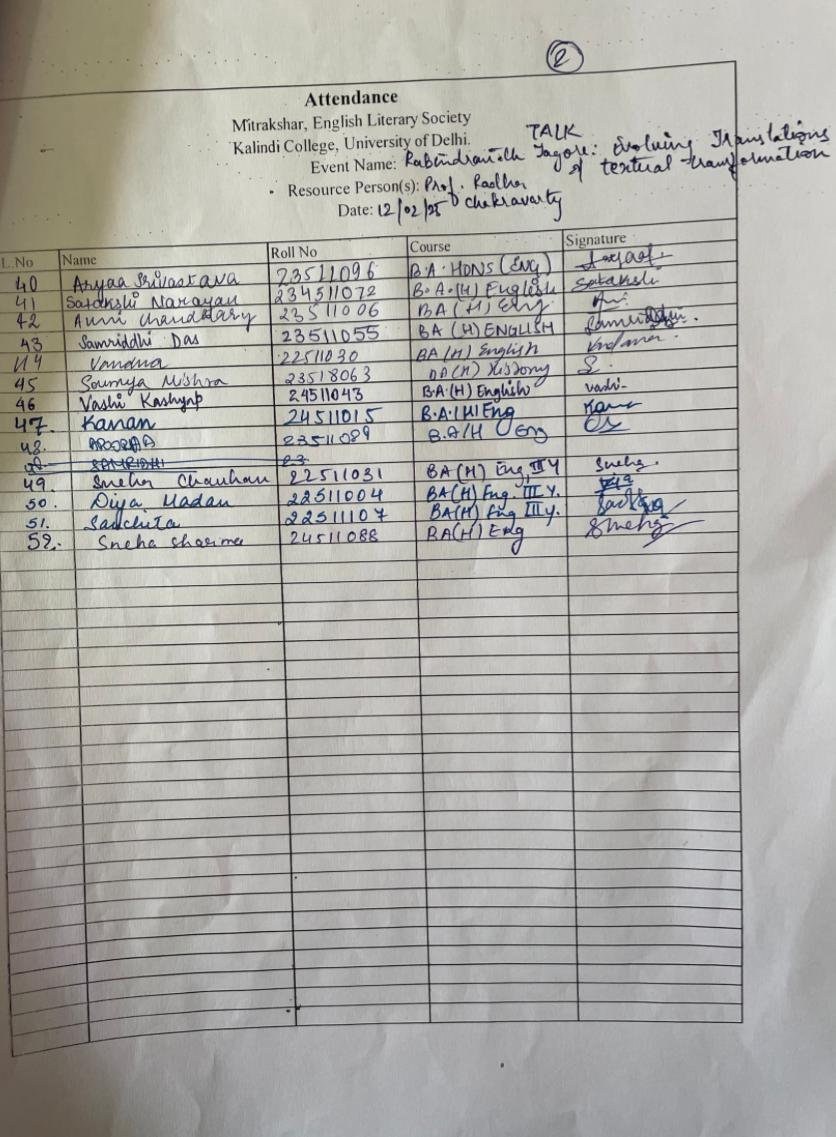 2
Attendance
Mitrakshar, English Literary Society
Kalindi College, University of Delhi.
TALK
Event Name: Rabindranath Tagore: Evolving Translations
of textural transformation
Resource Person(s): Prof. Radha
Chakravarty
Date: 12/02/25
L.No Name Roll No Course Signature
40 Aryaa Srivastava 23511096 B.A. HONS (ENG)
41 Satakshi Narayan 234511072 B.A.(H) English Satakshi
42 Avni Chaudhary 23511006 BA (H) Eng
43 Samriddhi Das 23511055 BA (H) ENGLISH
44 Vandna 22511030 BA(H) English
45 Soumya Mishra 23518063 BA(H) History S.
46 Vashi Kashyap 24511043 B.A.(H) English vashi
47. Kanan 24511015 B.A.(H) Eng
48. 23511089 B.A/H Eng
SAMRIDHI 23
49 Sneha Chauhan 22511031 BA(H) Eng III Y Sneha.
50. Diya Madan 22511004 BA(H) Eng. III Y.
51. Sanchita 22511107 BA(H) Eng III y.
52. Sneha Sharma 24511088 BA(H) Eng Sneha